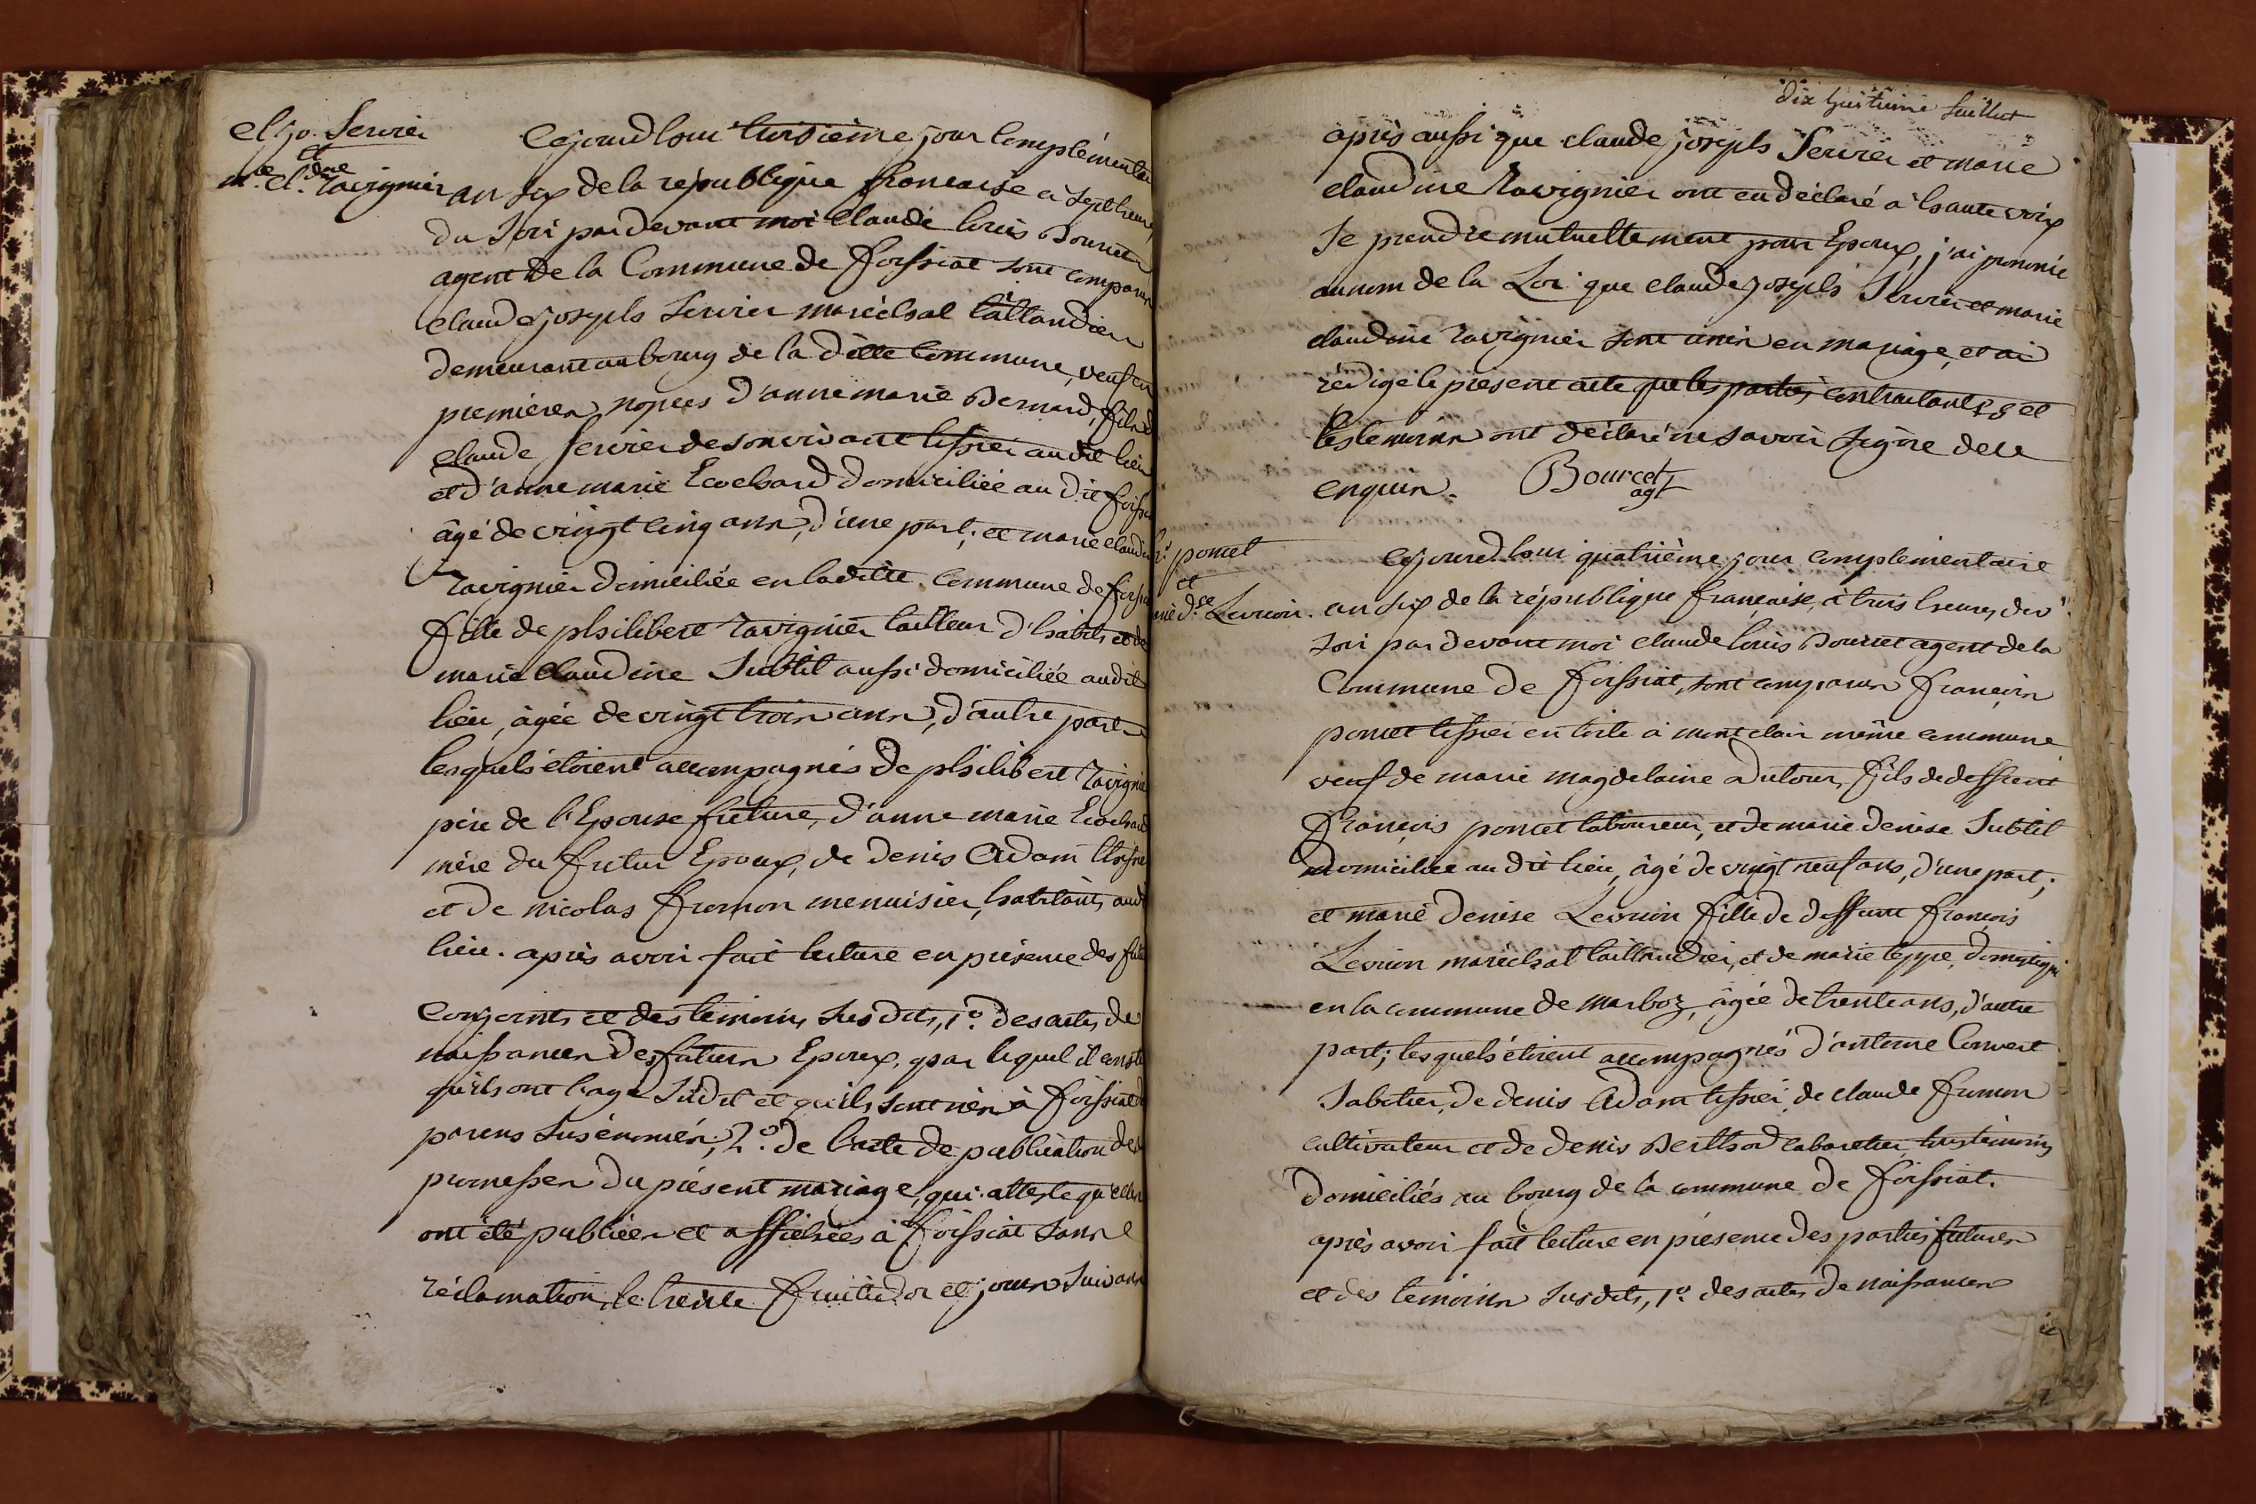 Cl. jo. Servier
et
m.ie Cl.dine Ravignier
Cejourdhui troisième jour Complémentai
an six de la république francaise à sept heures
du Soir par devant moi Claude louis Bourcet
agent de la Commune de foissiat sont comparus
claude joseph Servier maréchal taillandier
demeurant au bourg de la ditte Commune, veuf en
premieres nopces d'anne marie Bernard, fils de
claude Servier de son vivant tissier au dit lieu
et d'anne marie Ecochard domiciliée au dit foissia
âgé de vingt cinq ans, d'une part; et marie claudin
Ravignier domiciliée en la ditte Commune de foissia
fille de philibert Ravignier tailleur d'habits et de
marie Claudine Subtil aussi domiciliée au dit
lieu, âgée de vingt trois ans, d'autre part
lesquels étoient accompagnés de philibert Ravignie
père de l'Epouse future, d'anne marie Ecochard
mère du futur Epoux, de denis Adam tissie
et de nicolas fromon menuisier, habitants aud
lieu. après avoir fait lecture en présence des fut
Conjoints et des temoins Susdits, 1.o des actes de
naissances des futurs Epoux, par lequel il const
qu'ils ont l'age Sudit et qu'ils sont nés à foissiat d
parens Susénomés, 2.o de l'acte de publication des
promesses du présent mariage, qui atteste qu'elles
ont été publiées et affichées à foissiat sans
réclamation le trente fructidor et jours Suivans
dix huitieme feuillet
après aussi que claude joseph Servier et marie
claudine Ravignier ont eu déclaré à haute voix
Se prendre mutuellement pour Epoux, j'ai prononcé
au nom de la Loi que claude joseph Servier et marie
claudine Ravignier sont unis en mariage, et ai
rédigé le présent acte que les parties contractantes et
les temoins ont déclaré ne savoir signé de ce
enquis. Bourcet
agt
f.s poncet
et
mie d.se Levrion.
Cejourd'hui quatrième jour complementaire
an six de la république française, à trois heures du
soir par devant moi claude louis Bourcet agent de la
Commune de foissiat, sont comparus francois
poncet tissier en toile à mont clair même commune
veuf de marie magdelaine Dutour, fils de deffunt
François poncet laboureur, et de marie denise Subtil
domiciliée au dit lieu, âgé de vingt neuf ans, d'une part;
et marie denise Levrion fille de deffunt françois
Levrion maréchal taillandier, et de marie teppe, domestique
en la commune de marboz, âgée de trente ans, d'autre
part; lesquels étoient accompagnés d'antoine Convert
Sabotier, de denis Adam tissier, de claude fromon
cultivateur et de denis Berthod cabaretier tous témoins
domiciliés au bourg de la commune de foissiat.
après avoir fait lecture en présence des parties futures
et des temoins susdits, 1.o des actes de naissances